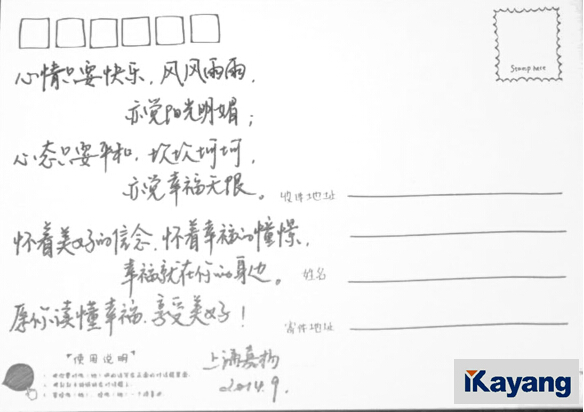 Stamp here
心情只要快乐，风风雨雨，
亦觉阳光明媚；
心态只要平和，坎坎坷坷，
亦觉幸福无限。
收件地址
怀着美好的信念，怀着幸福的憧憬，
幸福就在你的身边。
姓名
愿你读懂幸福、享受美好！
寄件地址
"使用说明"
上海嘉扬
2014.9.
Kayang